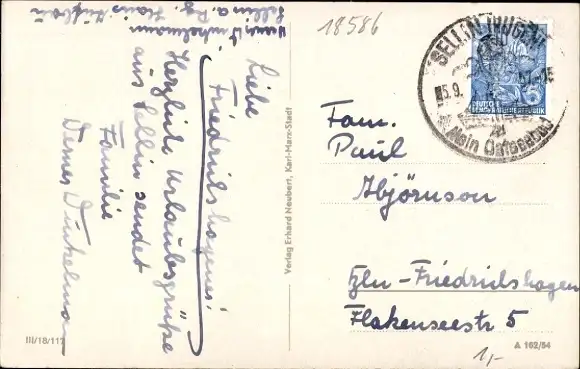 Werner Dinkelmann
Sellin a. Rg.
Liebe
Friedrichshagener!
Herzliche Urlaubsgrüße
aus Sellin sendet
Familie
Werner Dinkelmann
III/18/117
Verlag Erhard Neubert, Karl-Marx-Stadt
18586
SELLIN (RÜGEN)
5.9.
Mein Ostseebad
DEUTSCHE
DEMOKRATISCHE REPUBLIK
Fam.
Paul
Bln-Friedrichshagen
Flakenseestr 5
A 162/54
1,-